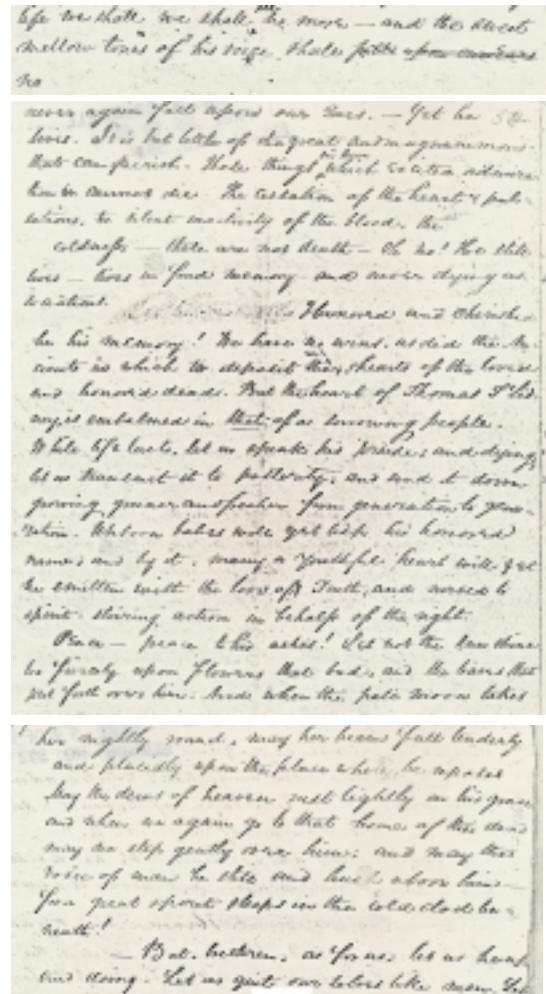 life we shall we shall be more — and the sweet
mellow tones of his voice shall
no
never again fall upon our ears. — Yet he
lives. It is but little of the great and magnanimous
that can perish. Those things which excite admira-
tion cannot die. The cessation of the heart's pul-
sations, the silent inactivity of the blood, the
coldness — these are not death — Oh no! He still
lives — lives in fond memory and never dying
Honored and cherished
be his memory! We have no urns, as did the An-
cients in which to deposit the hearts of the loved
and honored dead. But the heart of Thomas
is embalmed in that of a sorrowing people.
While life lasts, let us speak his praise; and dying
let us transmit it to posterity, and send it down
growing greener and fresher from generation to gene-
ration. Unborn babes will yet lisp his honored
name; and by it, many a youthful heart will yet
be smitten with the love of Truth, and nerved to
spirit-stirring action in behalf of the right.
Peace — peace to his ashes! Let not the sun shine
too fiercely upon flowers that bud, and the
put forth over him. And when the pale moon takes
her nightly round, may her beams fall tenderly
and placidly upon the place where he reposes
May the dews of heaven rest lightly on his grave
and when we again go to that home of the dead
may we step gently over him; and may the
voice of man be still and hush above him —
for a great spirit sleeps in the cold clod be-
neath!
— But, brethren, as for us, let us be up
and doing. Let us quit our selves like men. Let